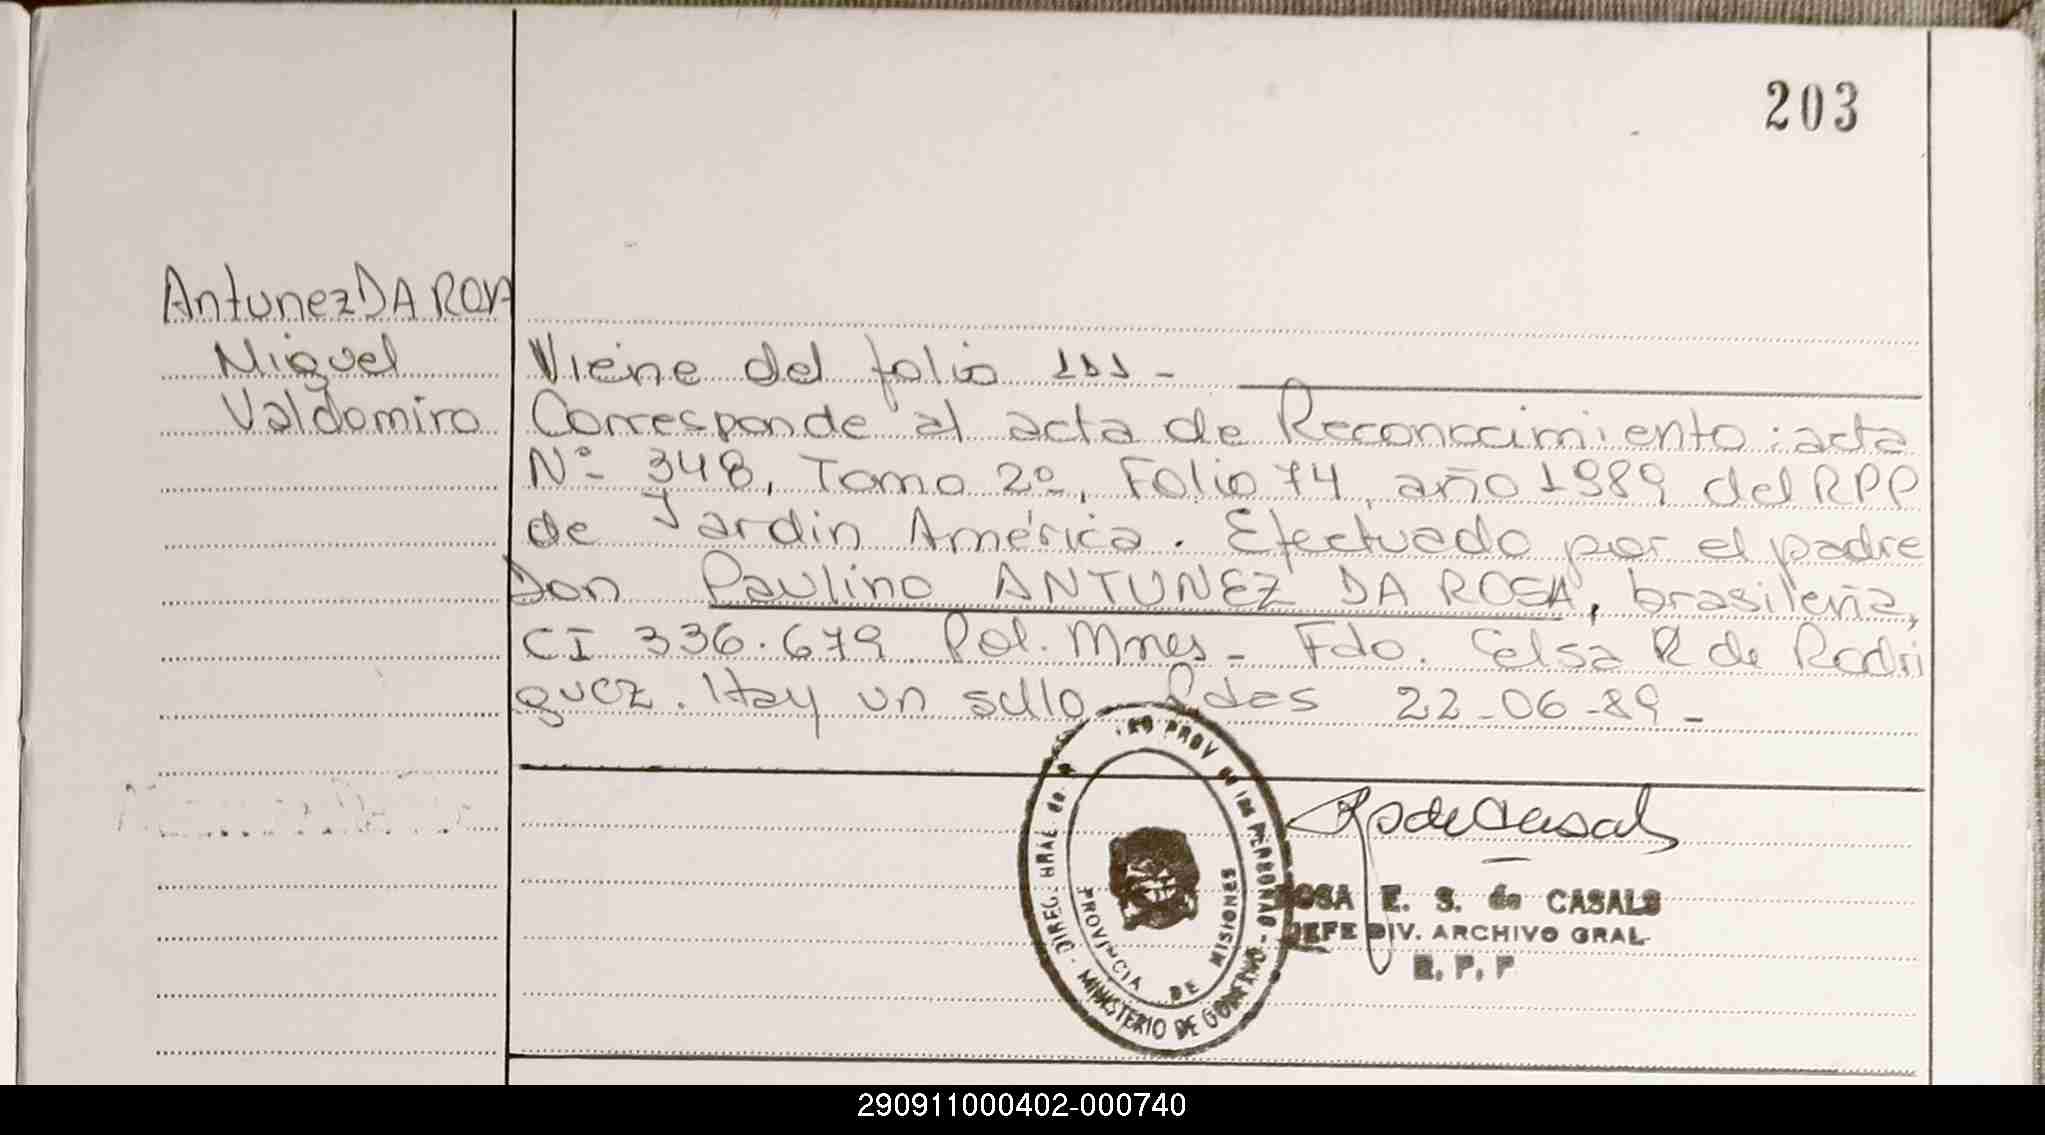 203
Antunez DA ROSA
Miguel
Valdomiro
Viene del folio 111 -
Corresponde al acta de Reconocimiento: acta
Nº 348, Tomo 2º, Folio 74, año 1989 del RPP
de Jardin América. Efectuado por el padre
Don Paulino ANTUNEZ DA ROSA, brasileña,
CI 336.679 Pol. Mnes - Fdo. Celsa R de Rodri
guez. Hay un sello Pdas 22-06-89 -
DIREC. GRAL de REG PROV de las PERSONAS - MINISTERIO DE GOBIERNO
PROVINCIA DE MISIONES
R S de Casals
ROSA E. S. de CASALS
JEFE DIV. ARCHIVO GRAL.
R. P. P
290911000402-000740